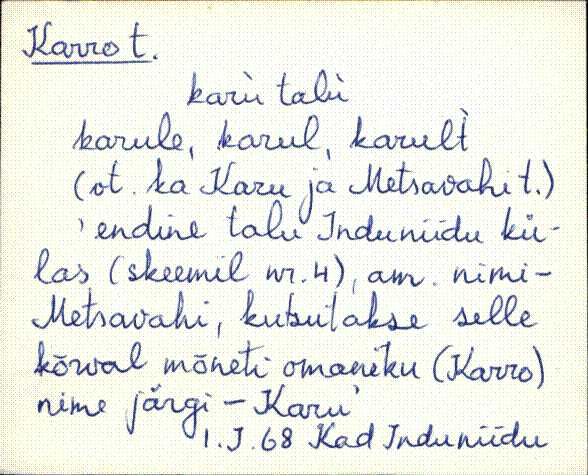 Karro t.
karù talù
karule, karul, karult̀
(vt. ka Karu ja Metsavahi t.)
'endine talu Induniidu kü-
las (skeemil nr. 4), am. nimi-
Metsavahi, kutsutakse selle
kõrval mõneti omaniku (Karro)
nime järgi - Karu'
1.I.68 Kad Induniidu